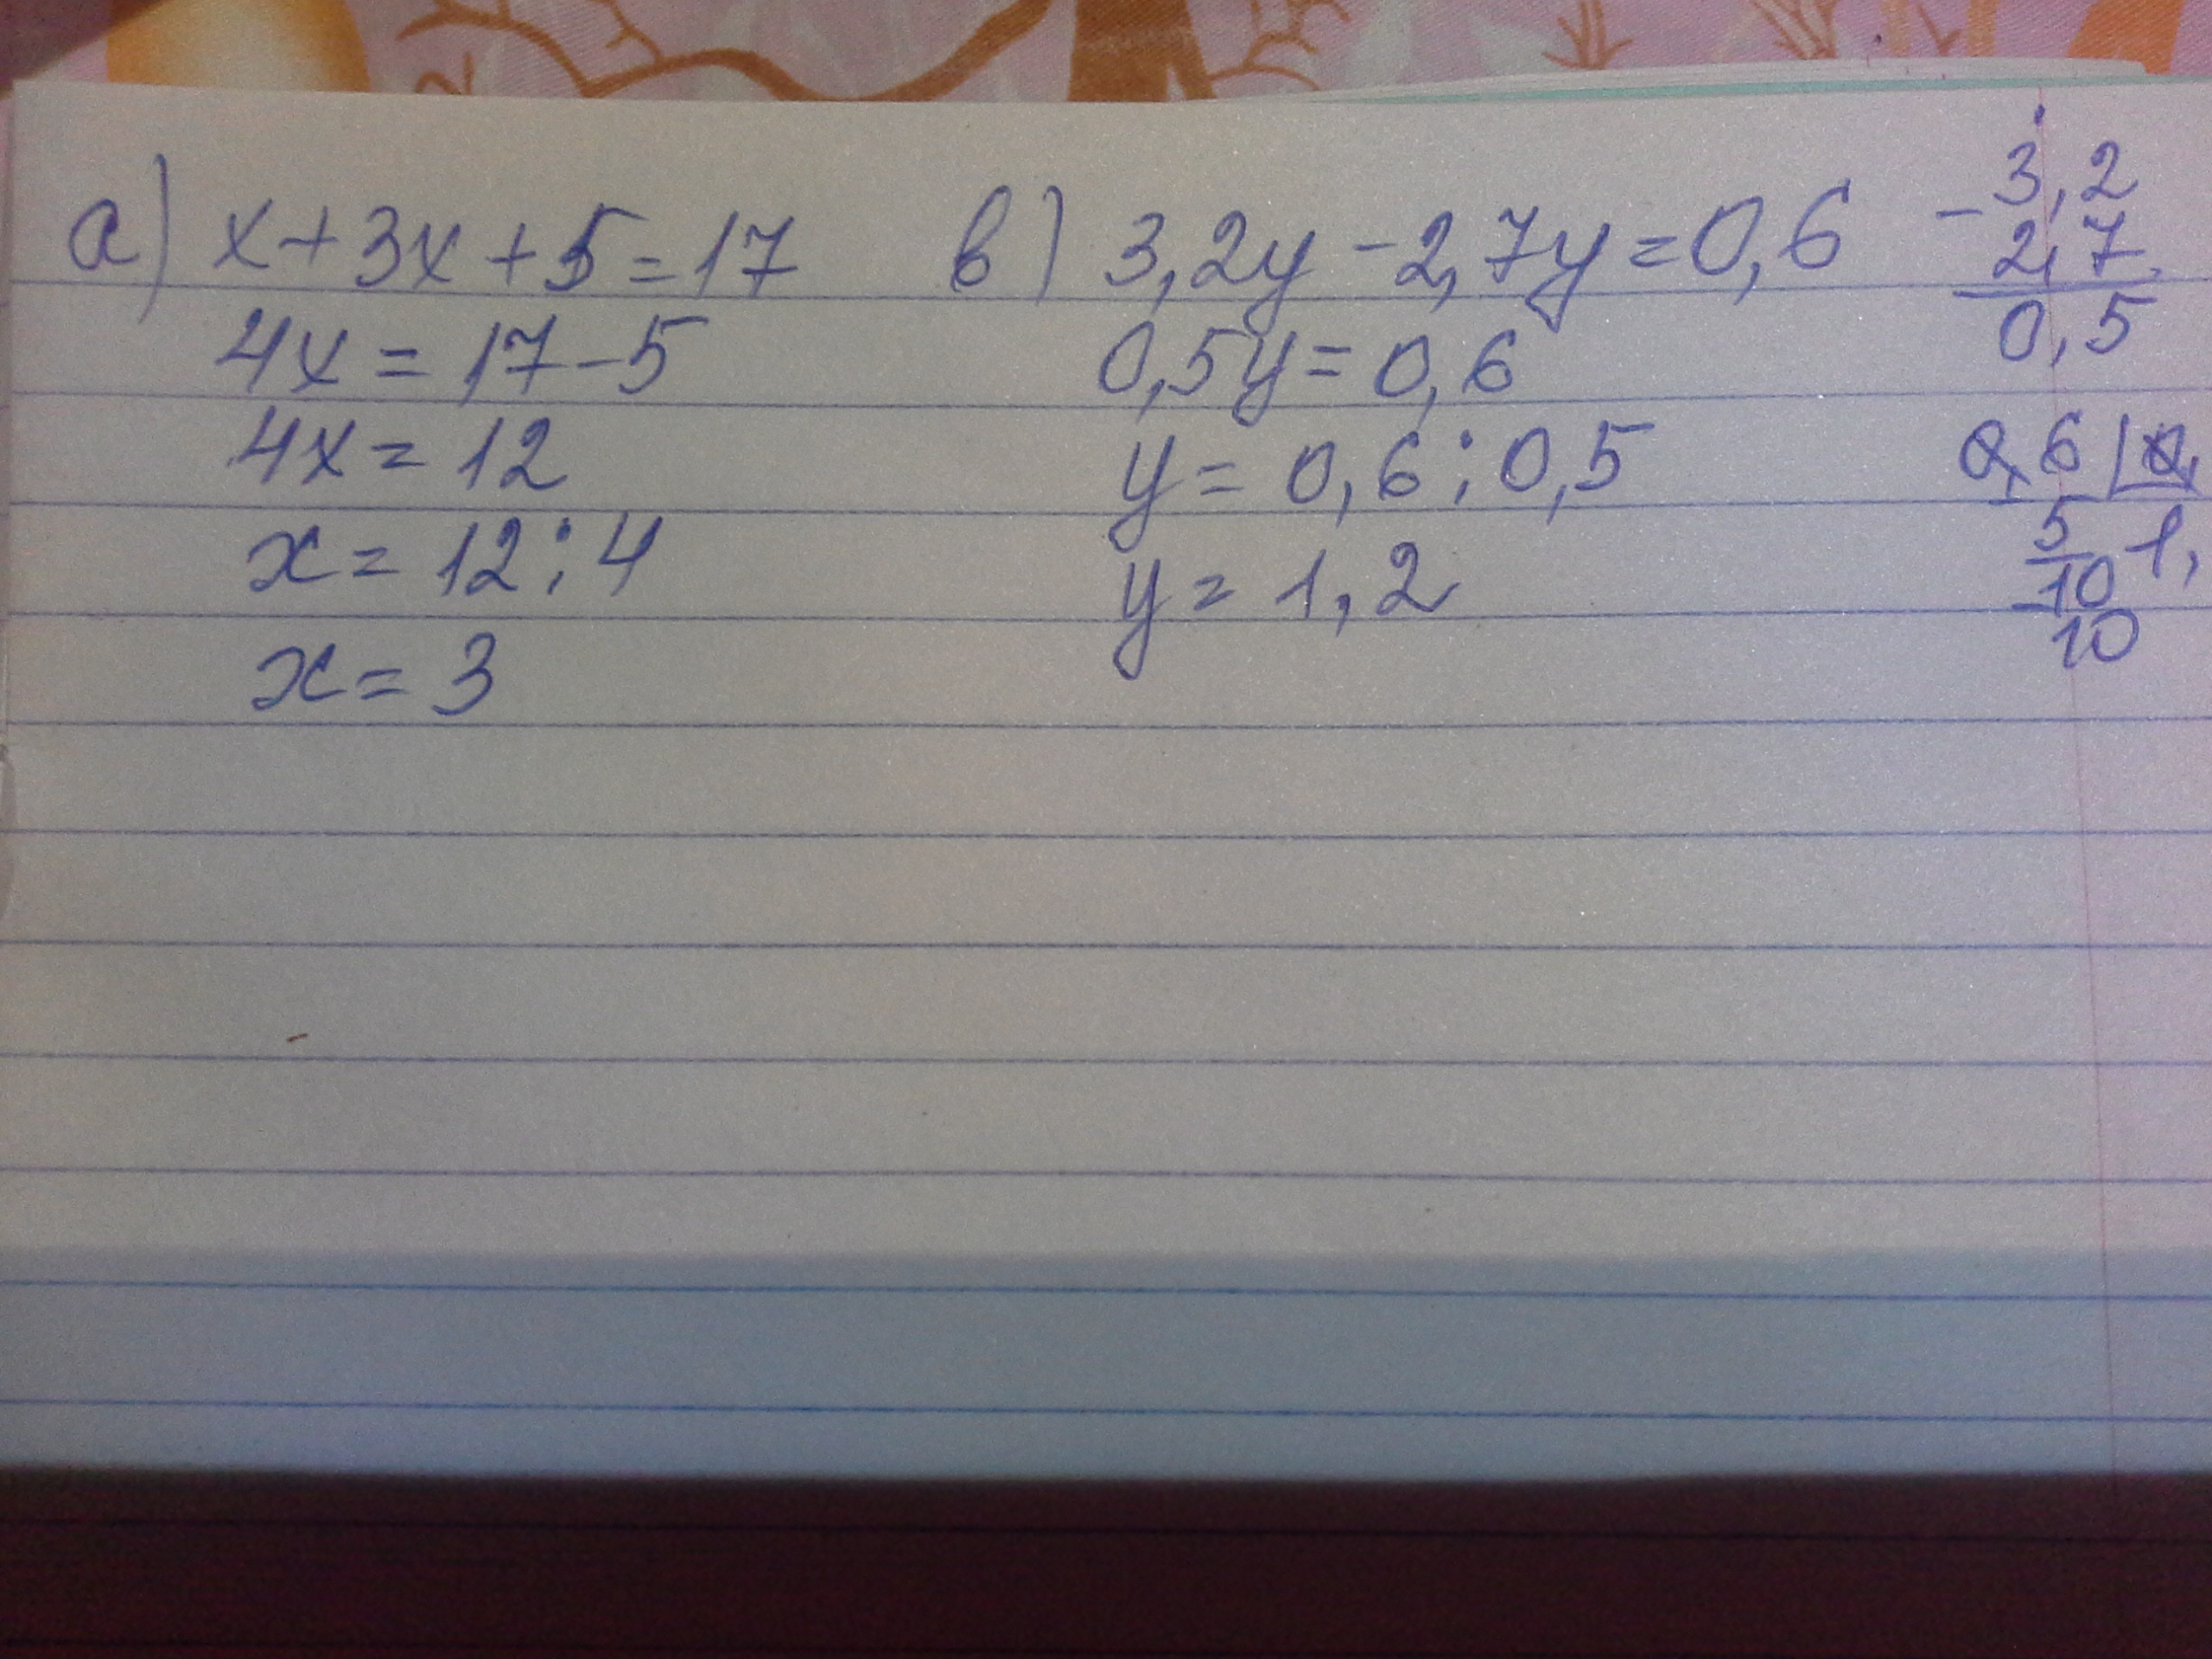 а) x+3x+5=17
4x=17-5
4x=12
x=12:4
x=3
в) 3,2y-2,7y=0,6
0,5y=0,6
y=0,6:0,5
y=1,2
-3,2
2,7
0,5
0,6|0,
5 1,
-10
10